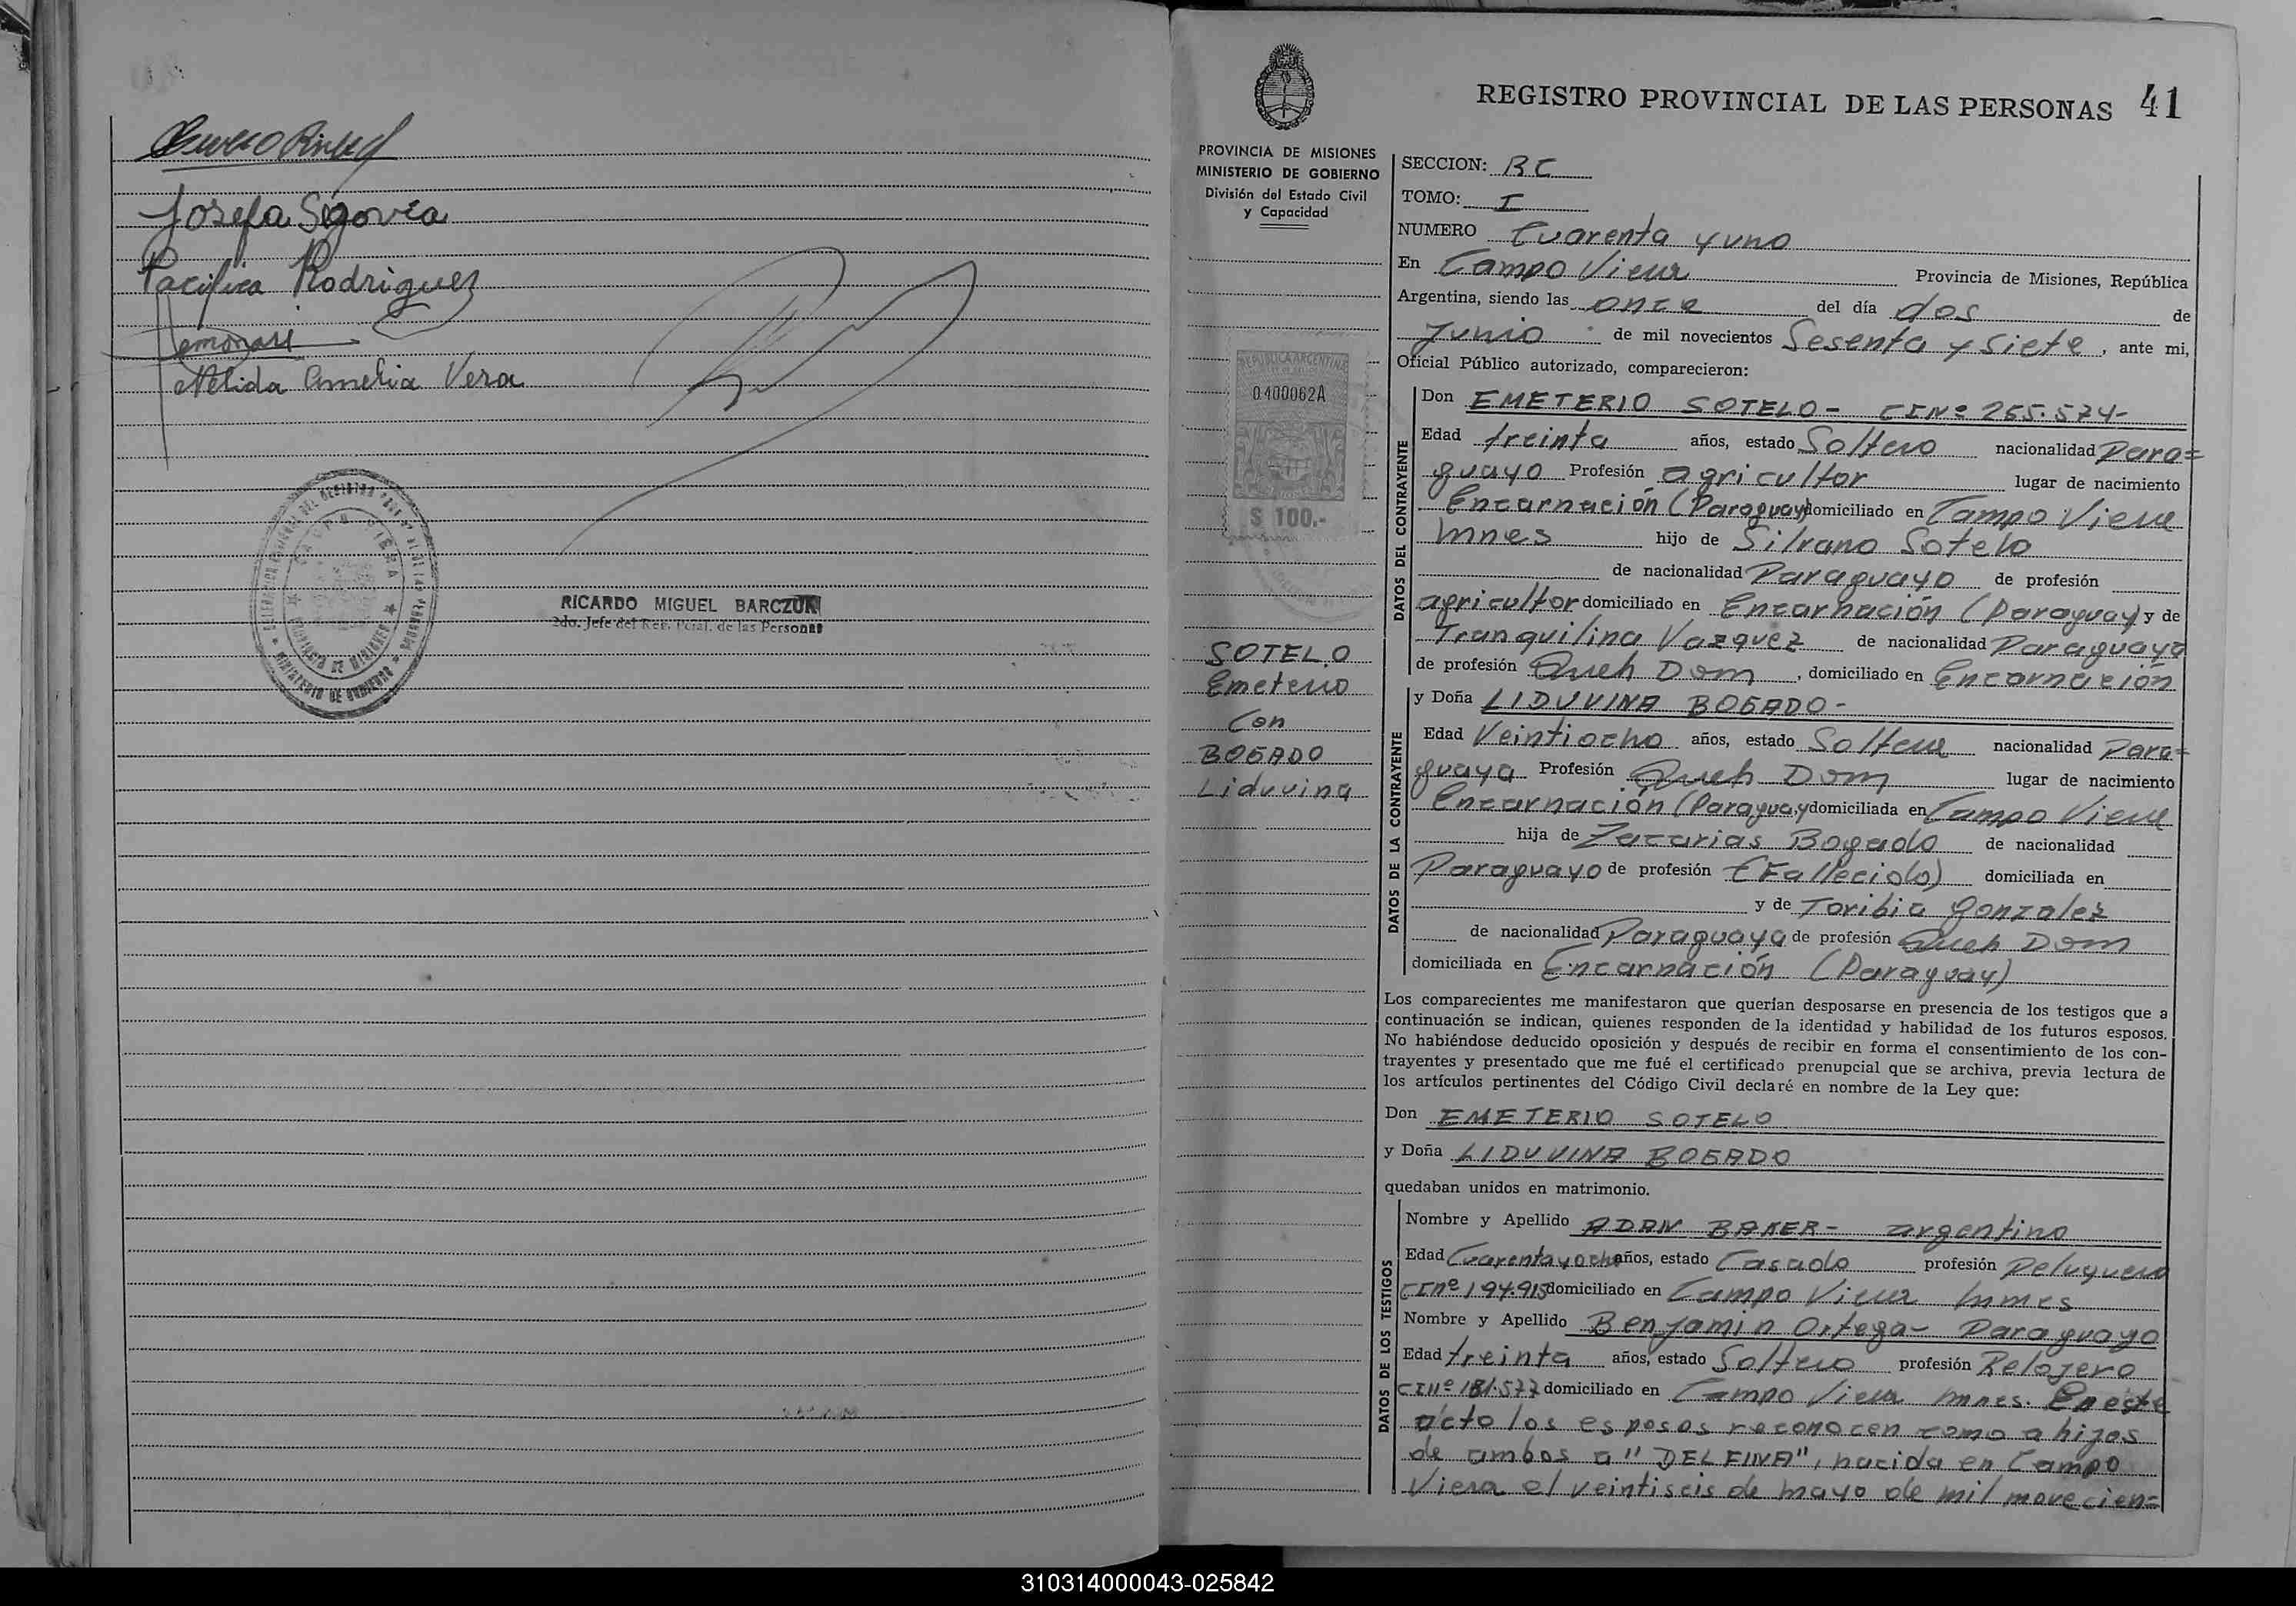 Josefa Segovia
Pacifica Rodriguez
Nélida Amelia Vera
RICARDO MIGUEL BARCZUK
2do. Jefe del Reg. Pcial. de las Personas
REGISTRO PROVINCIAL DE LAS PERSONAS 41
PROVINCIA DE MISIONES
MINISTERIO DE GOBIERNO
División del Estado Civil
y Capacidad
REPUBLICA ARGENTINA
0400062A
$ 100.-
SOTELO
Emeterio
Con
BOGADO
Liduvina
SECCION: BC
TOMO: I
NUMERO Cuarenta y uno
En Campo Viera Provincia de Misiones, República
Argentina, siendo las once del día dos de
Junio de mil novecientos Sesenta y Siete, ante mi,
Oficial Público autorizado, comparecieron:
DATOS DEL CONTRAYENTE
Don EMETERIO SOTELO- CINº 255.574-
Edad treinta años, estado Soltero nacionalidad Para=
guayo Profesión agricultor lugar de nacimiento
Encarnación (Paraguay) domiciliado en Campo Viera
Mnes hijo de Silvano Sotelo
de nacionalidad Paraguayo de profesión
agricultor domiciliado en Encarnación (Paraguay) y de
Tranquilina Vazquez de nacionalidad Paraguaya
de profesión Queh Dom, domiciliado en Encarnación
DATOS DE LA CONTRAYENTE
y Doña LIDUVINA BOGADO-
Edad Veintiocho años, estado Soltera nacionalidad Para=
guaya Profesión Queh Dom lugar de nacimiento
Encarnación (Paraguay domiciliada en Campo Viera
hija de Zacarias Bogado de nacionalidad
Paraguayo de profesión (Fallecido) domiciliada en
y de Toribia Gonzalez
de nacionalidad Paraguaya de profesión Queh Dom
domiciliada en Encarnación (Paraguay)
Los comparecientes me manifestaron que querían desposarse en presencia de los testigos que a
continuación se indican, quienes responden de la identidad y habilidad de los futuros esposos.
No habiéndose deducido oposición y después de recibir en forma el consentimiento de los con-
trayentes y presentado que me fué el certificado prenupcial que se archiva, previa lectura de
los artículos pertinentes del Código Civil declaré en nombre de la Ley que:
Don EMETERIO SOTELO
y Doña LIDUVINA BOGADO
quedaban unidos en matrimonio.
DATOS DE LOS TESTIGOS
Nombre y Apellido ADAN BAKER- argentino
Edad Cuarenta y ocho años, estado Casado profesión Peluquero
CInº 194.915 domiciliado en Campo Viera Mnes
Nombre y Apellido Benjamin Ortega- Paraguayo
Edad treinta años, estado Soltero profesión Relojero
CInº 181.577 domiciliado en Campo Viera Mnes. En este
acto los esposos reconocen como a hijos
de ambos a "DELFINA", nacida en Campo
Viera el veintiseis de mayo de mil novecien=
310314000043-025842